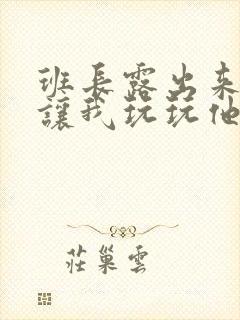 班長露出来
讓我玩玩他
莊巢雲